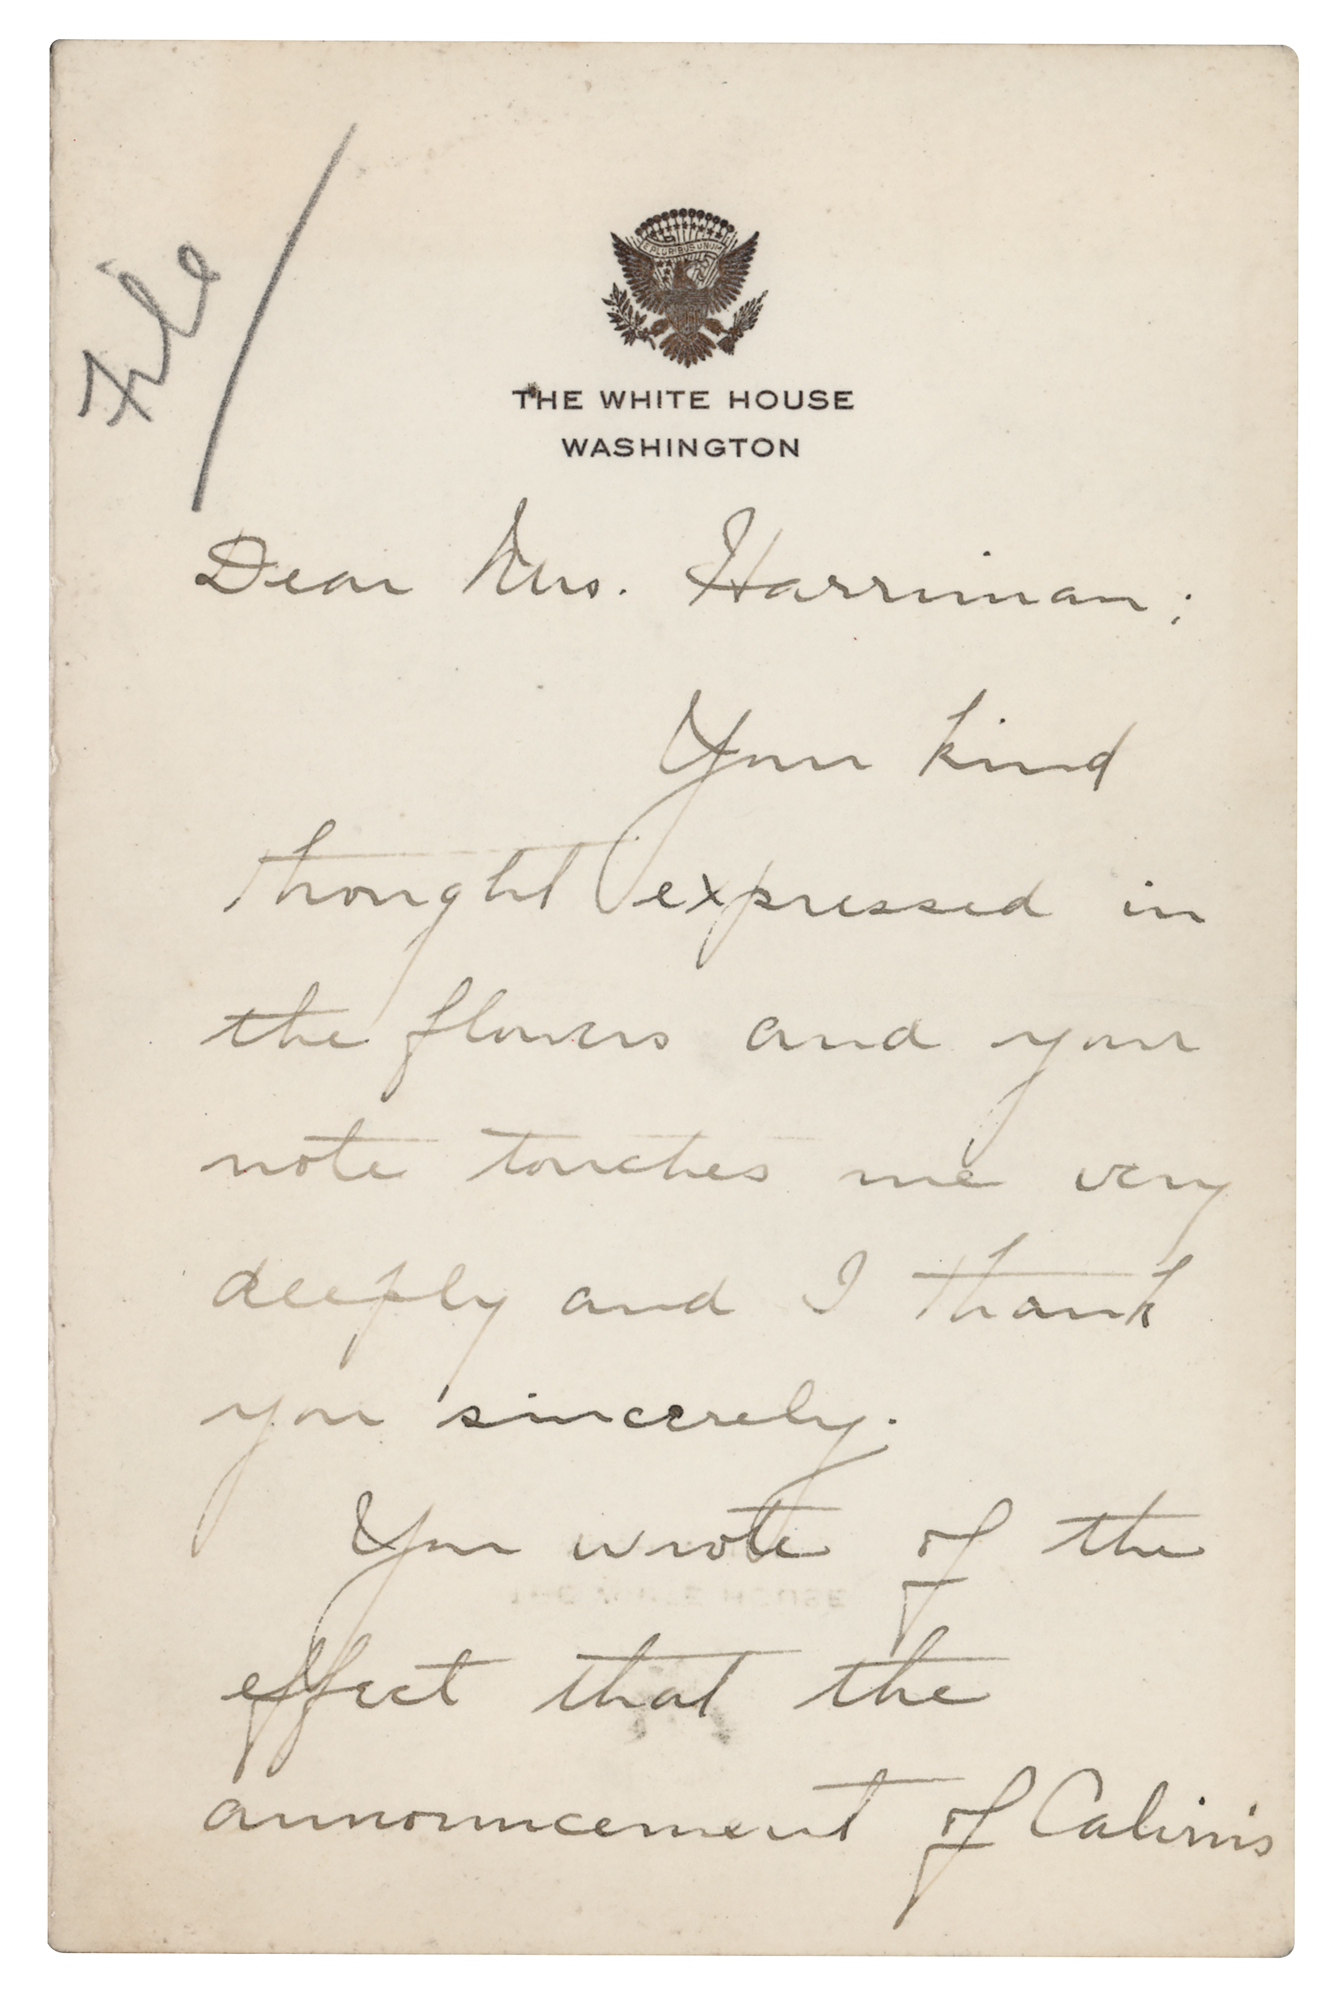 File
E PLURIBUS UNUM
THE WHITE HOUSE
WASHINGTON
Dear Mrs. Harriman;
Your kind
thought expressed in
the flowers and your
note touches me very
deeply and I thank
you sincerely.
You wrote of the
effect that the
announcement of Calvin's